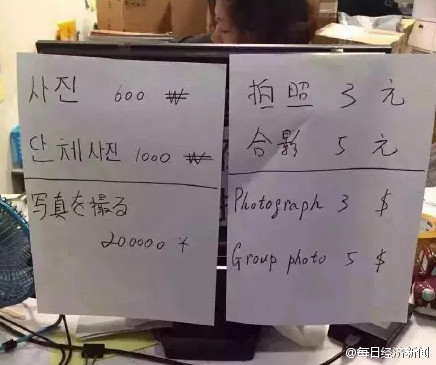 사진 600 ₩
단체사진 1000 ₩
写真を撮る
200000 ¥
拍照 3 元
合影 5 元
Photograph 3 $
Group photo 5 $
@每日经济新闻